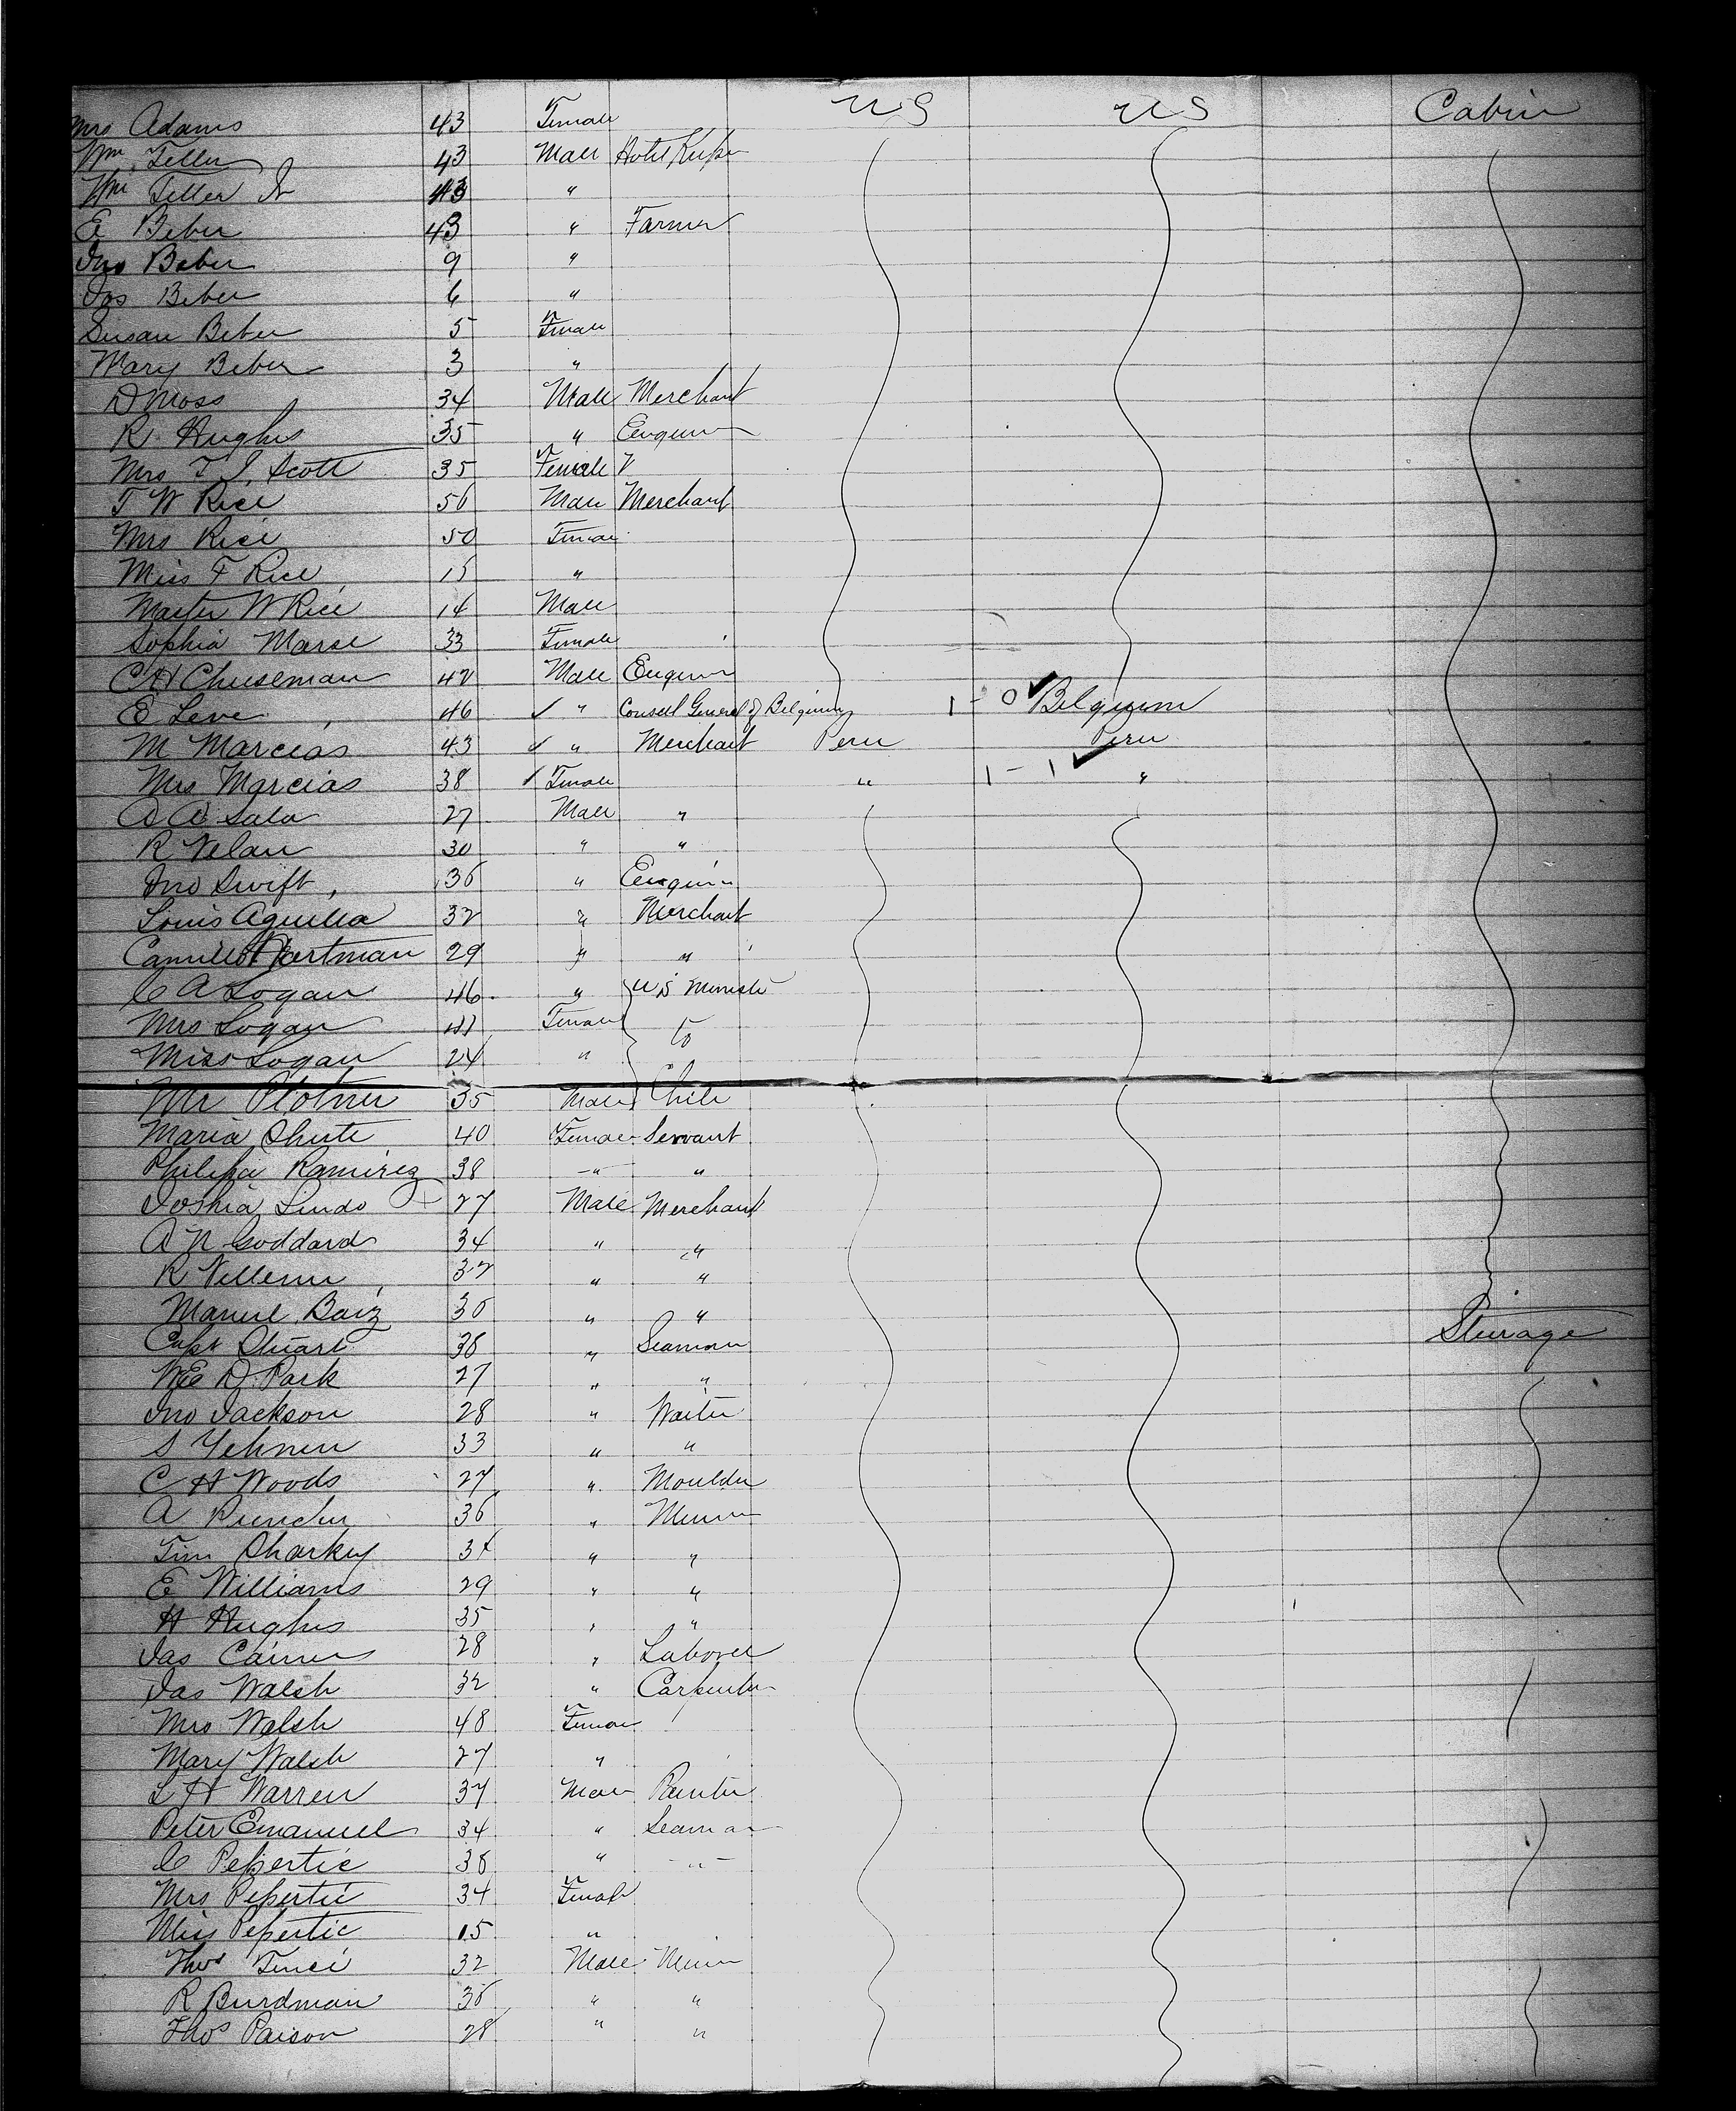 Mrs Adams 43 Female U S U S Cabin
Wm Teller 43 Male Hotel Keeper
Wm Teller Jr 43 "
E Beber 43 " Farmer
Jno Beber 9 "
Jos Beber 6 "
Susan Beber 5 Female
Mary Beber 3 "
D Moss 34 Male Merchant
R. Hughes 35 " Engineer
Mrs T. J. Scott 35 Female
T W Rice 56 Male Merchant
Mrs Rice 50 Female
Miss F Rice 15 "
Master W Rice 14 Male
Sophia Marse 33 Female
C H Cheeseman 42 Male Engineer
E Leve 46 ✓ " Consul General of Belgium 1 - 0 ✓ Belgium
M Marcias 43 ✓ " Merchant Peru Peru
Mrs Marcias 38 ✓ Female " 1 - 1 ✓ "
A Sala 27 Male "
R Velan 30 " "
Jno Swift 36 " Engineer
Louis Aguilla 32 " Merchant
Camille Hartman 29 " "
C A Logan 46 " U S Minister
Mrs Logan 41 Female to
Miss Logan 24 "
Mr Plotner 35 Male Chile
Maria Shute 40 Female Servant
Philipa Ramirez 38 " "
Joshia Lindo 27 Male Merchant
A N Goddard 34 " "
R 32 " "
Manuel Baiz 30 " "
Capt Stuart 38 " Seaman Steerage
D. Park 27 " "
Jno Jackson 28 " Waiter
S 33 " "
C H Woods 27 " Moulder
A 36 " Miner
Tim Sharkey 34 " "
E Williams 29 " "
H Hughes 35 " "
Jas Cairns 28 " Laborer
Jas Walsh 32 " Carpenter
Mrs Walsh 48 Female
Mary Walsh 27 "
L H Warren 37 Male Painter
Peter Emanuel 34 " Seaman
C Pepertie 38 " "
Mrs Pepertie 34 Female
Miss Pepertie 15 "
Thos 32 Male Miner
R Burdman 36 " "
Thos Paison 28 " "